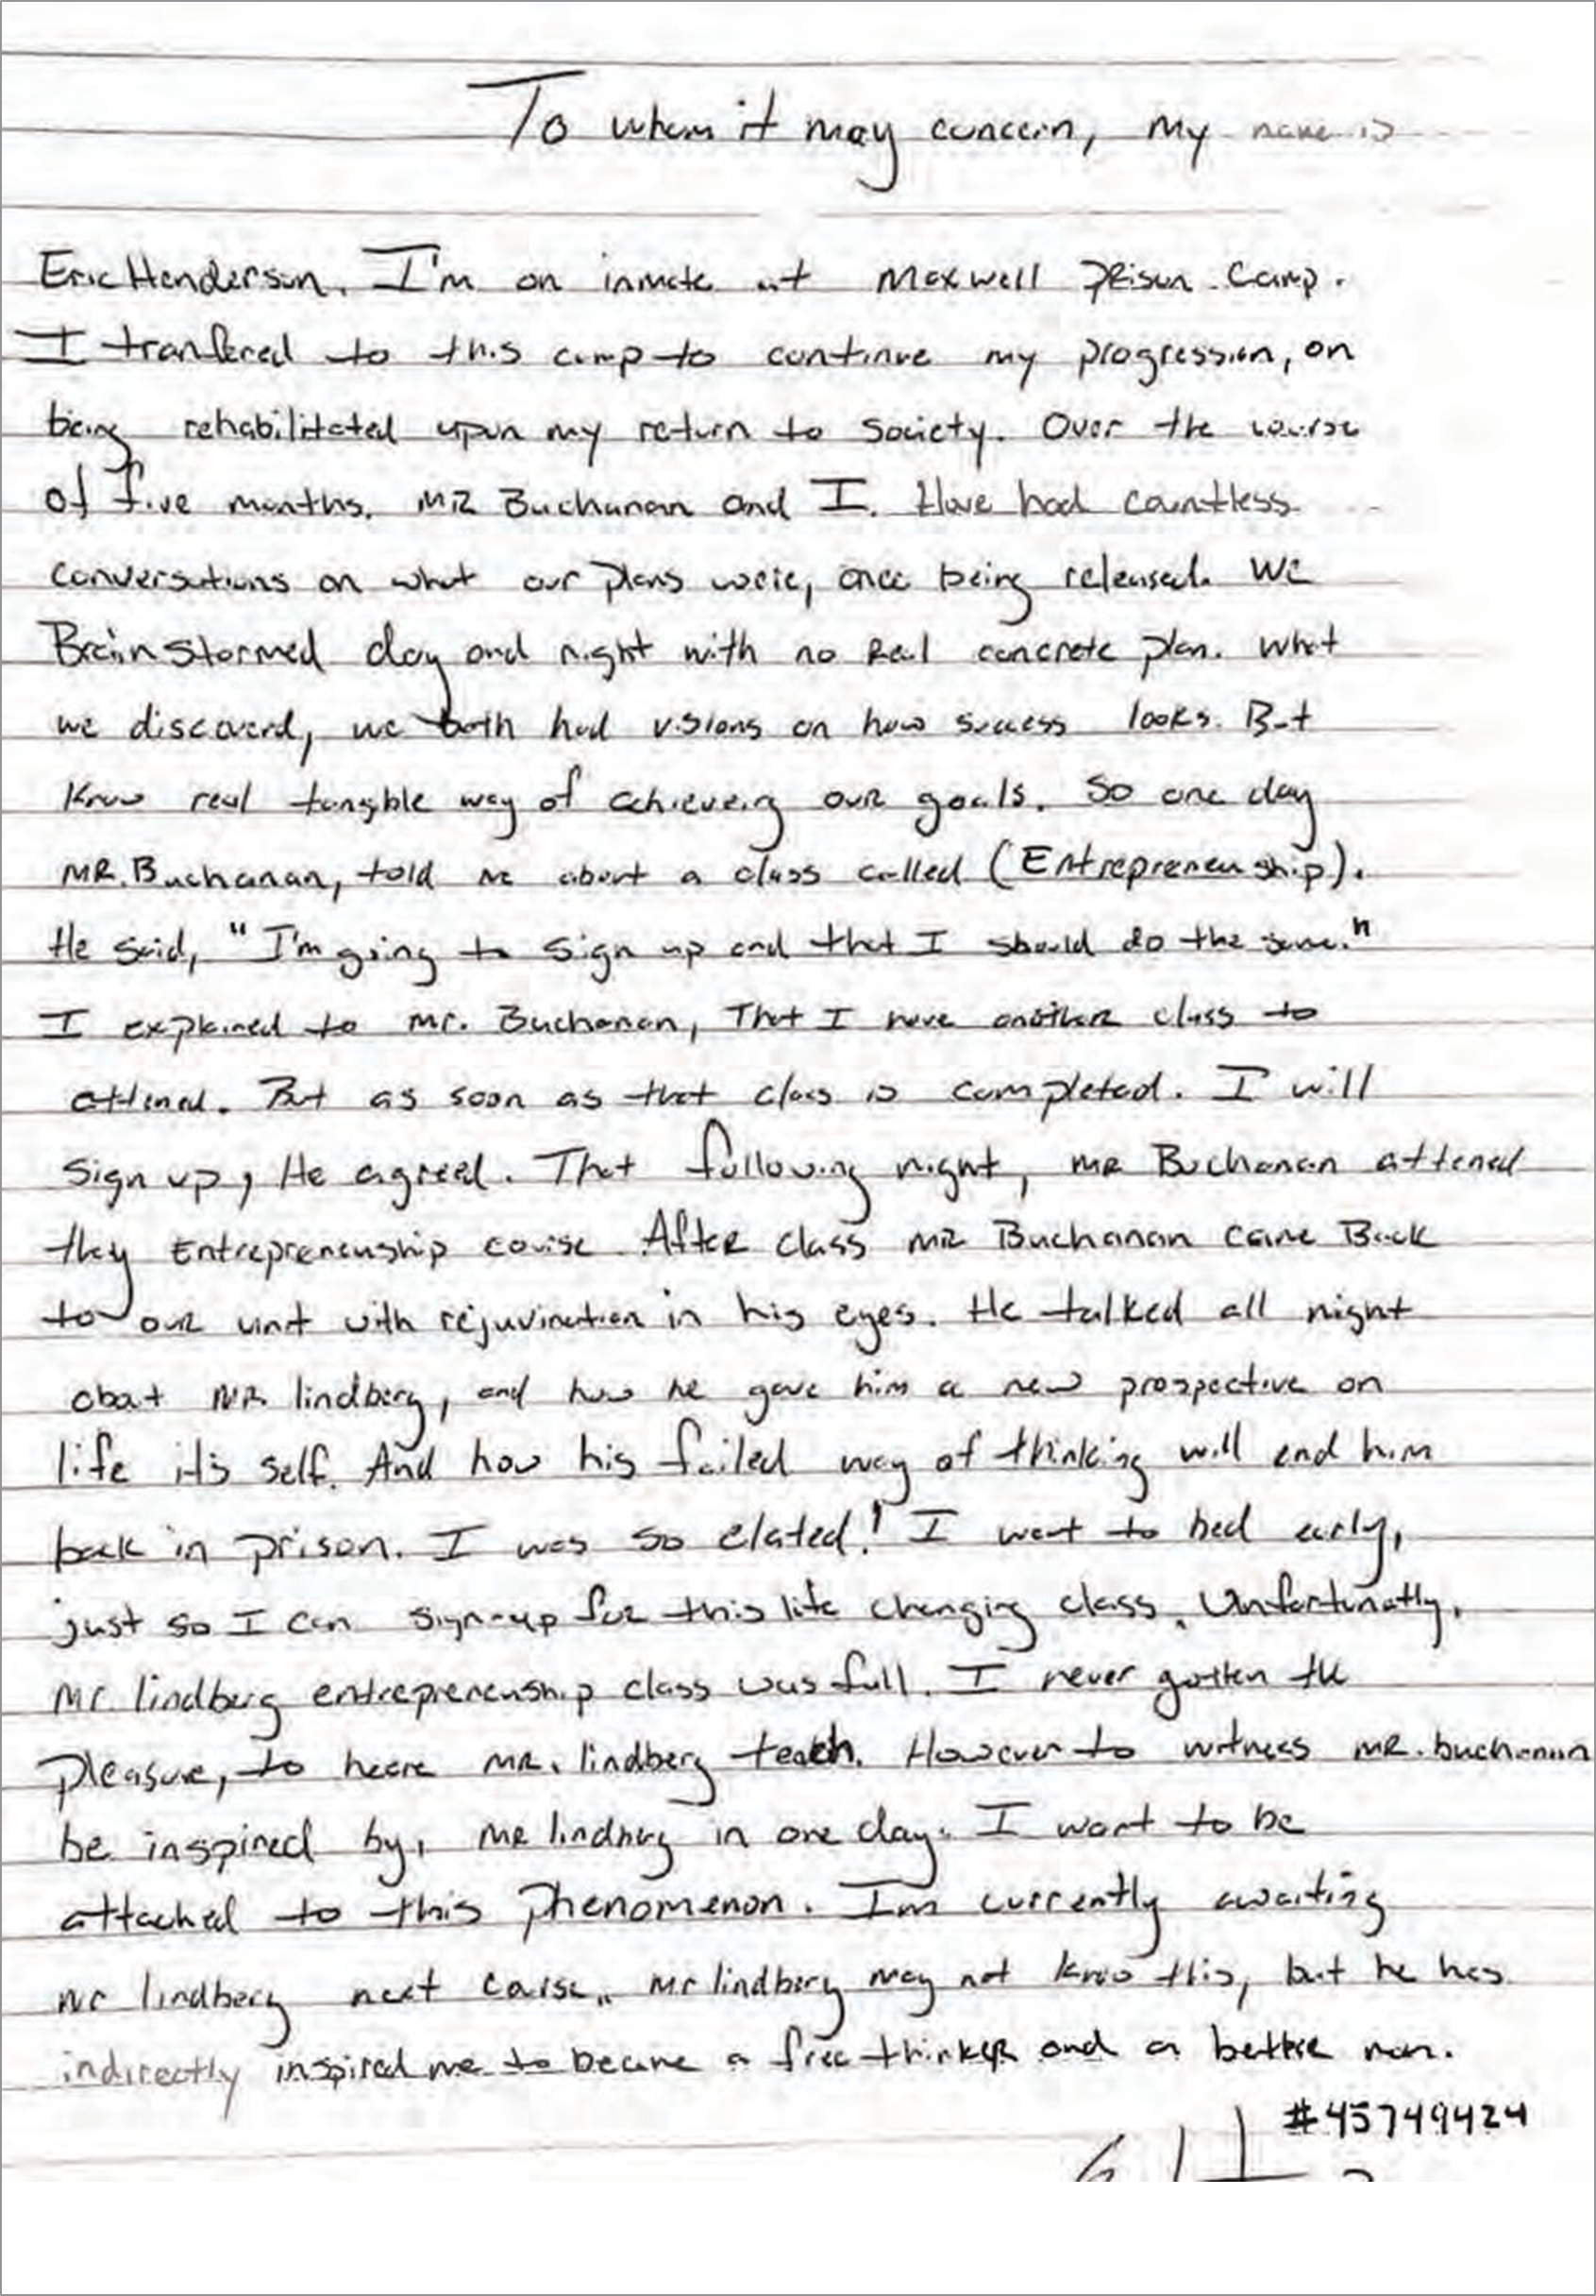 To whom it may concern, my name is
Eric Henderson. I'm an inmate at Maxwell Prison Camp.
I tranfered to this camp to continue my progression, on
being rehabilitated upon my return to society. Over the course
of five months. MR Buchanan and I. Have had countless
conversations on what our plans were, once being released. We
Brainstormed day and night with no Real concrete plan. What
we discoverd, we both had visions on how success looks. But
know real tangible way of achieveing our goals. So one day
MR. Buchanan, told me about a class called (Entrepreneuship).
He said, "I'm going to sign up and that I should do the same."
I explained to Mr. Buchanan, That I have another class to
attened. But as soon as that class is completed. I will
sign up, He agreed. That following night, MR Buchanan attened
they Entrepreneuship course. After class MR Buchanan came Back
to our unit with rejuvination in his eyes. He talked all night
about MR. lindberg, and how he gave him a new prospective on
life it's self. And how his failed way of thinking will end him
back in prison. I was so elated! I went to bed early,
just so I can sign-up for this life changing class. Unfortunatly,
Mr. lindberg entrepreneuship class was full. I never gotten the
pleasure, to heare MR. lindberg teach. However to witness MR. buchanan
be inspired by, MR lindberg in one day. I want to be
attached to this phenomenon. I'm currently awaiting
Mr lindberg next course. Mr lindberg may not know this, but he has
indirectly inspired me to became a free thinker and a better man.
#45749424